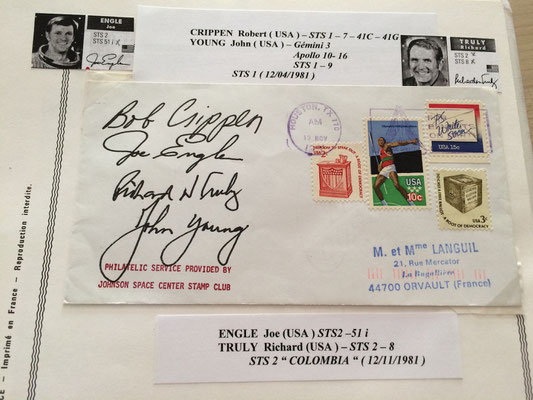 ENGLE
Joe
STS 2
STS 51 i
Joe Engle
CRIPPEN Robert ( USA ) – STS 1 – 7 – 41C – 41G
YOUNG John ( USA ) – Gémini 3
Apollo 10- 16
STS 1 – 9
STS 1 ( 12/04/1981 )
TRULY
Richard
STS 2
STS 8
Richard Truly
Bob Crippen
Joe Engle
Richard H Truly
John Young
HOUSTON, TX 770
AM
13 NOV
USA 2c
USA
10c
Write
soon
USA 15c
USA 3c
A ROOT OF DEMOCRACY
PHILATELIC SERVICE PROVIDED BY
JOHNSON SPACE CENTER STAMP CLUB
M. et Mme LANGUIL
21, Rue Mercator
La Bugallière
44700 ORVAULT (France)
ENGLE Joe (USA ) STS2 –51 i
TRULY Richard (USA ) – STS 2 – 8
STS 2 “ COLOMBIA “ ( 12/11/1981 )
– Imprimé en France – Reproduction interdite.